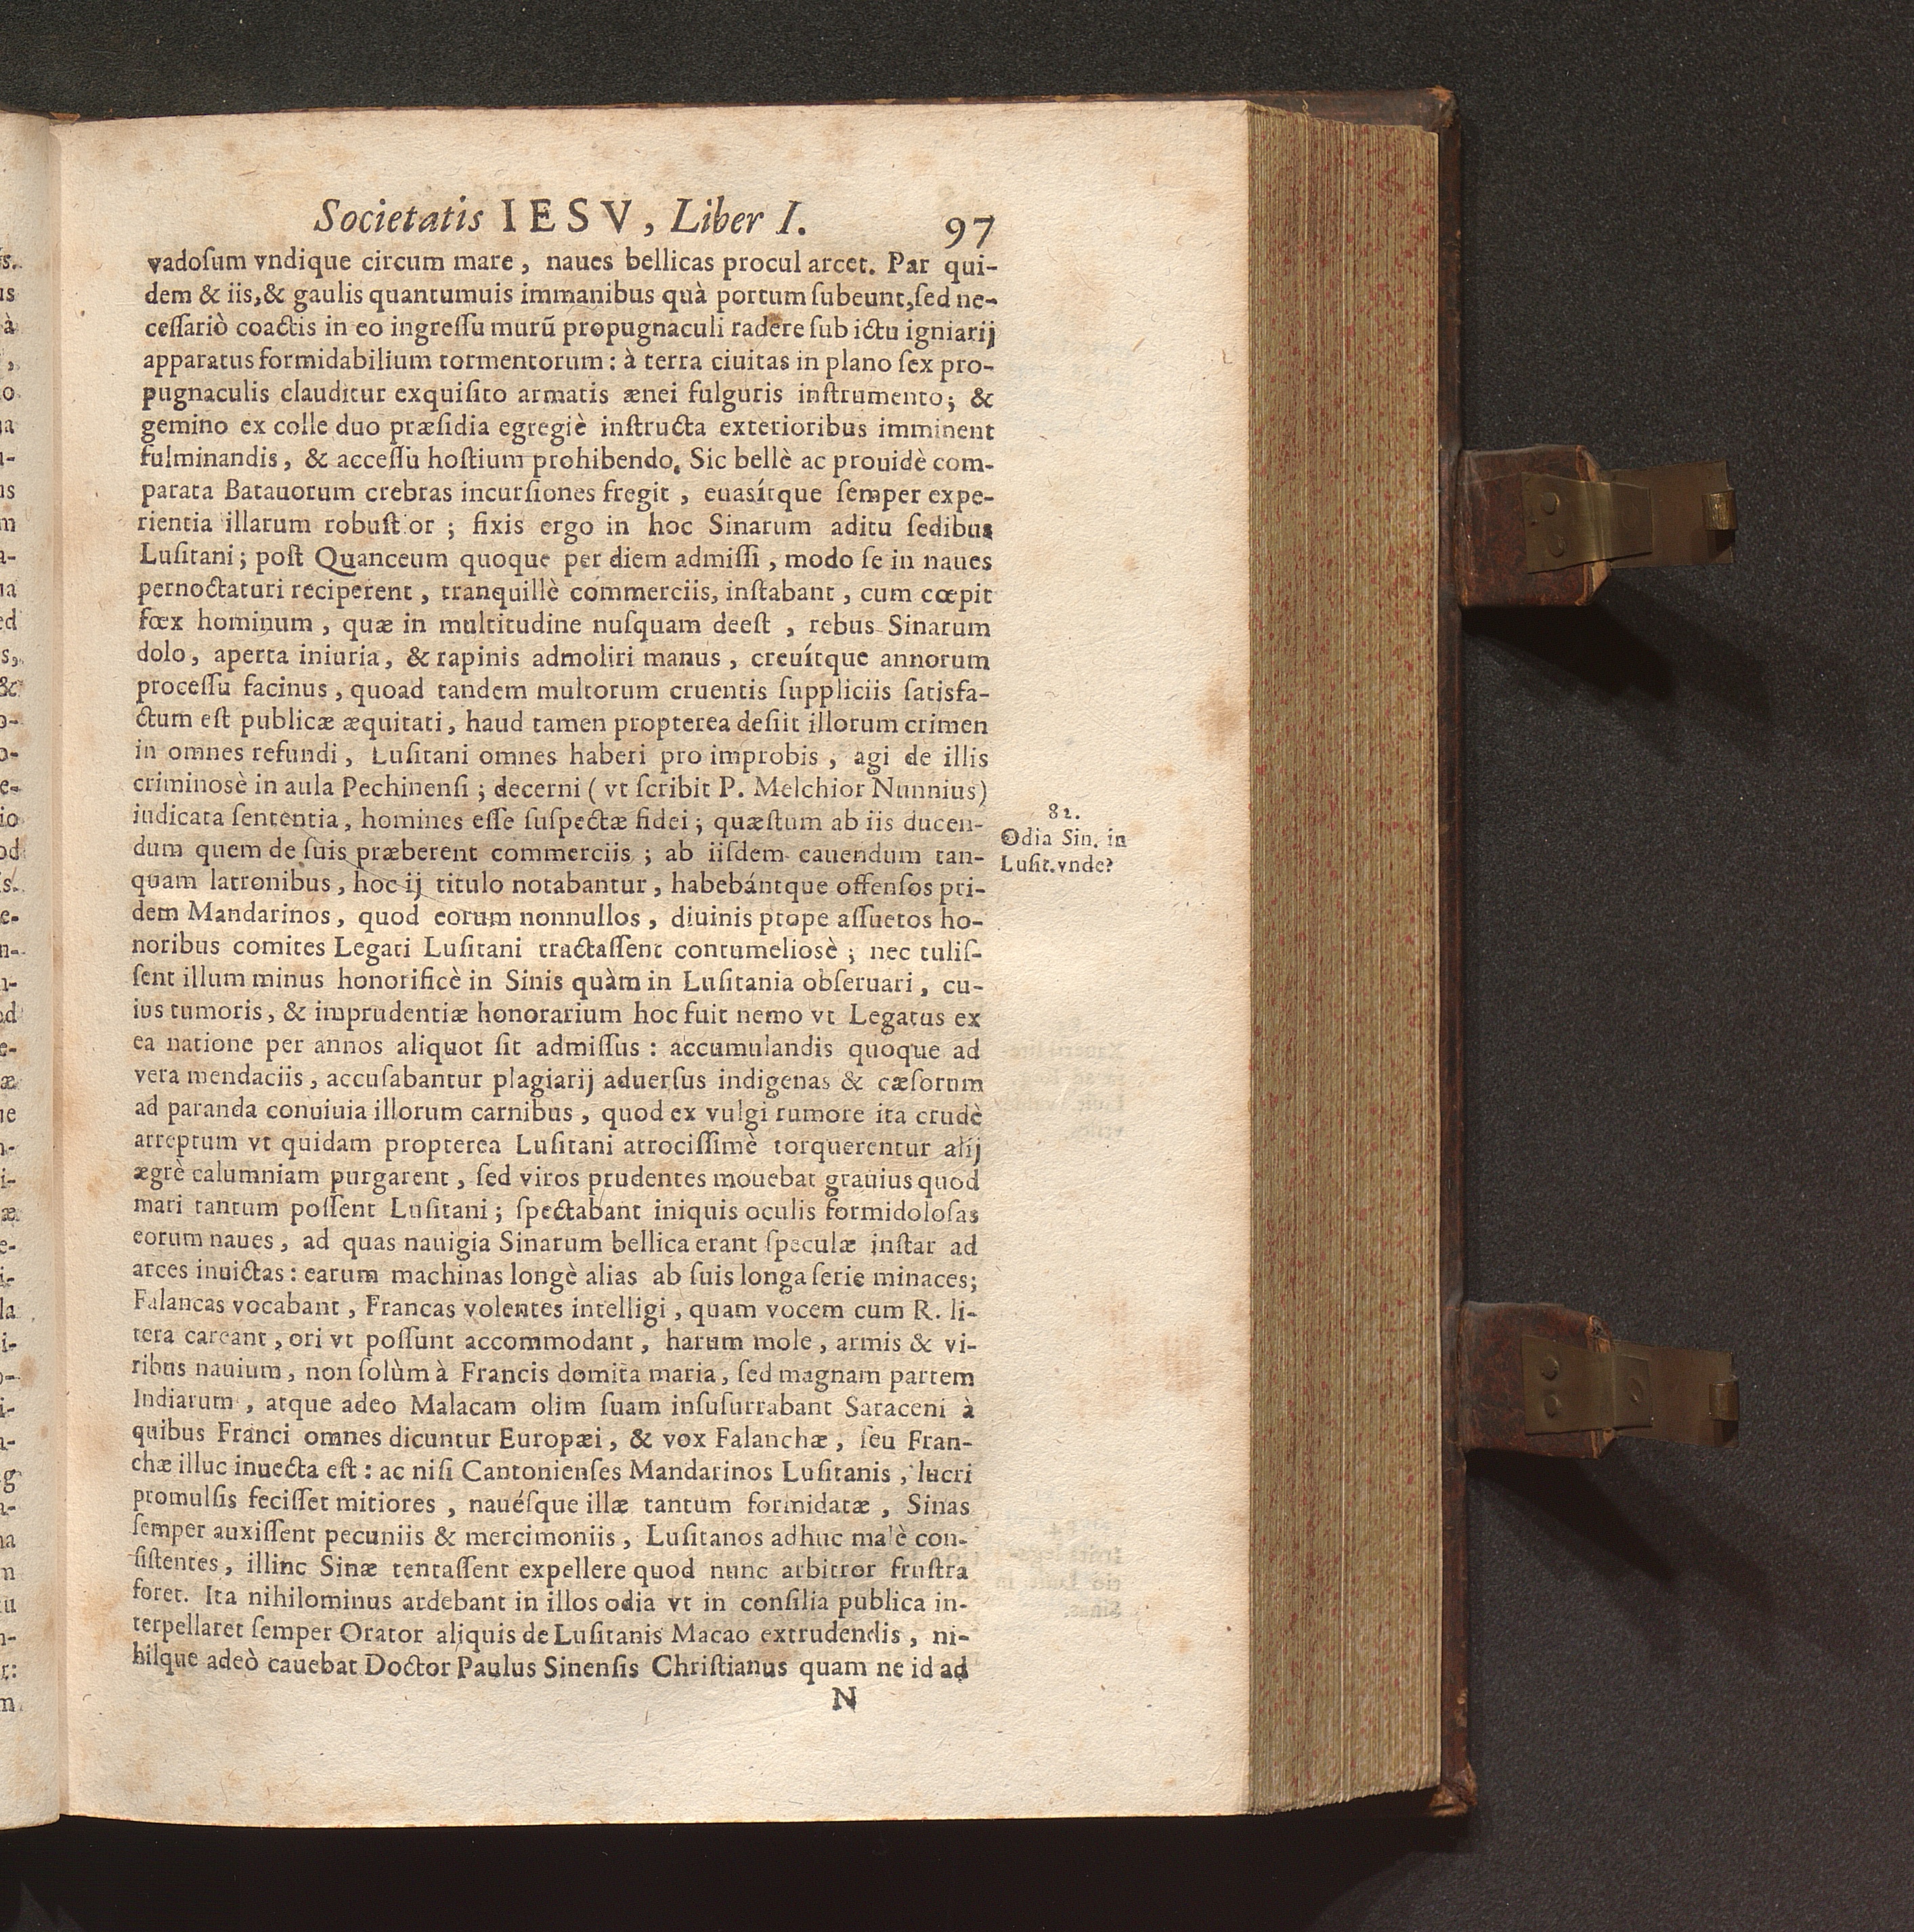 Societatis IESV, Liber I. 97
vadoſum vndique circum mare, naues bellicas procul arcet. Par qui-
dem & iis, & gaulis quantumuis immanibus quà portum ſubeunt, ſed ne-
ceſſariò coactis in eo ingreſſu murũ propugnaculi radere ſub ictu igniarij
apparatus formidabilium tormentorum: à terra ciuitas in plano ſex pro-
pugnaculis clauditur exquiſito armatis ænei fulguris inſtrumento; &
gemino ex colle duo præſidia egregiè inſtructa exterioribus imminent
fulminandis, & acceſſu hoſtium prohibendo. Sic bellè ac prouidè com-
parata Batauorum crebras incurſiones fregit, euasítque ſemper expe-
rientia illarum robuſt or; fixis ergo in hoc Sinarum aditu ſedibus
Luſitani; poſt Quanceum quoque per diem admiſſi, modo ſe in naues
pernoctaturi reciperent, tranquillè commerciis, inſtabant, cum cœpit
fœx hominum, quæ in multitudine nuſquam deeſt, rebus Sinarum
dolo, aperta iniuria, & rapinis admoliri manus, creuítque annorum
proceſſu facinus, quoad tandem multorum cruentis ſuppliciis ſatisfa-
ctum eſt publicæ æquitati, haud tamen propterea deſiit illorum crimen
in omnes refundi, Luſitani omnes haberi pro improbis, agi de illis
criminosè in aula Pechinenſi; decerni (vt ſcribit P. Melchior Nunnius)
iudicata ſententia, homines eſſe ſuſpectæ fidei; quæſtum ab iis ducen-
dum quem de ſuis præberent commerciis; ab iiſdem cauendum tan-
quam latronibus, hoc ij titulo notabantur, habebántque offenſos pri-
dem Mandarinos, quod eorum nonnullos, diuinis prope aſſuetos ho-
noribus comites Legati Luſitani tractaſſent contumeliosè; nec tuliſ-
ſent illum minus honorificè in Sinis quàm in Luſitania obſeruari, cu-
ius tumoris, & imprudentiæ honorarium hoc fuit nemo vt Legatus ex
ea natione per annos aliquot ſit admiſſus: accumulandis quoque ad
vera mendaciis, accuſabantur plagiarij aduerſus indigenas & cæſorum
ad paranda conuiuia illorum carnibus, quod ex vulgi rumore ita crudè
arreptum vt quidam propterea Luſitani atrociſſimè torquerentur alij
ægrè calumniam purgarent, ſed viros prudentes mouebat grauius quod
mari tantum poſſent Luſitani; ſpectabant iniquis oculis formidoloſas
eorum naues, ad quas nauigia Sinarum bellica erant ſpeculæ inſtar ad
arces inuictas: earum machinas longè alias ab ſuis longa ſerie minaces;
Falancas vocabant, Francas volentes intelligi, quam vocem cum R. li-
tera careant, ori vt poſſunt accommodant, harum mole, armis & vi-
ribus nauium, non ſolùm à Francis domita maria, ſed magnam partem
Indiarum, atque adeo Malacam olim ſuam inſuſurrabant Saraceni à
quibus Franci omnes dicuntur Europæi, & vox Falanchæ, ſeu Fran-
chæ illuc inuecta eſt: ac niſi Cantonienſes Mandarinos Luſitanis, lucri
promulſis feciſſet mitiores, nauéſque illæ tantum formidatæ, Sinas
ſemper auxiſſent pecuniis & mercimoniis, Luſitanos adhuc malè con-
ſiſtentes, illinc Sinæ tentaſſent expellere quod nunc arbitror fruſtra
foret. Ita nihilominus ardebant in illos odia vt in conſilia publica in-
terpellaret ſemper Orator aliquis de Luſitanis Macao extrudendis, ni-
hilque adeò cauebat Doctor Paulus Sinenſis Chriſtianus quam ne id ad
N
82.
Odia Sin. in
Luſit. vnde?